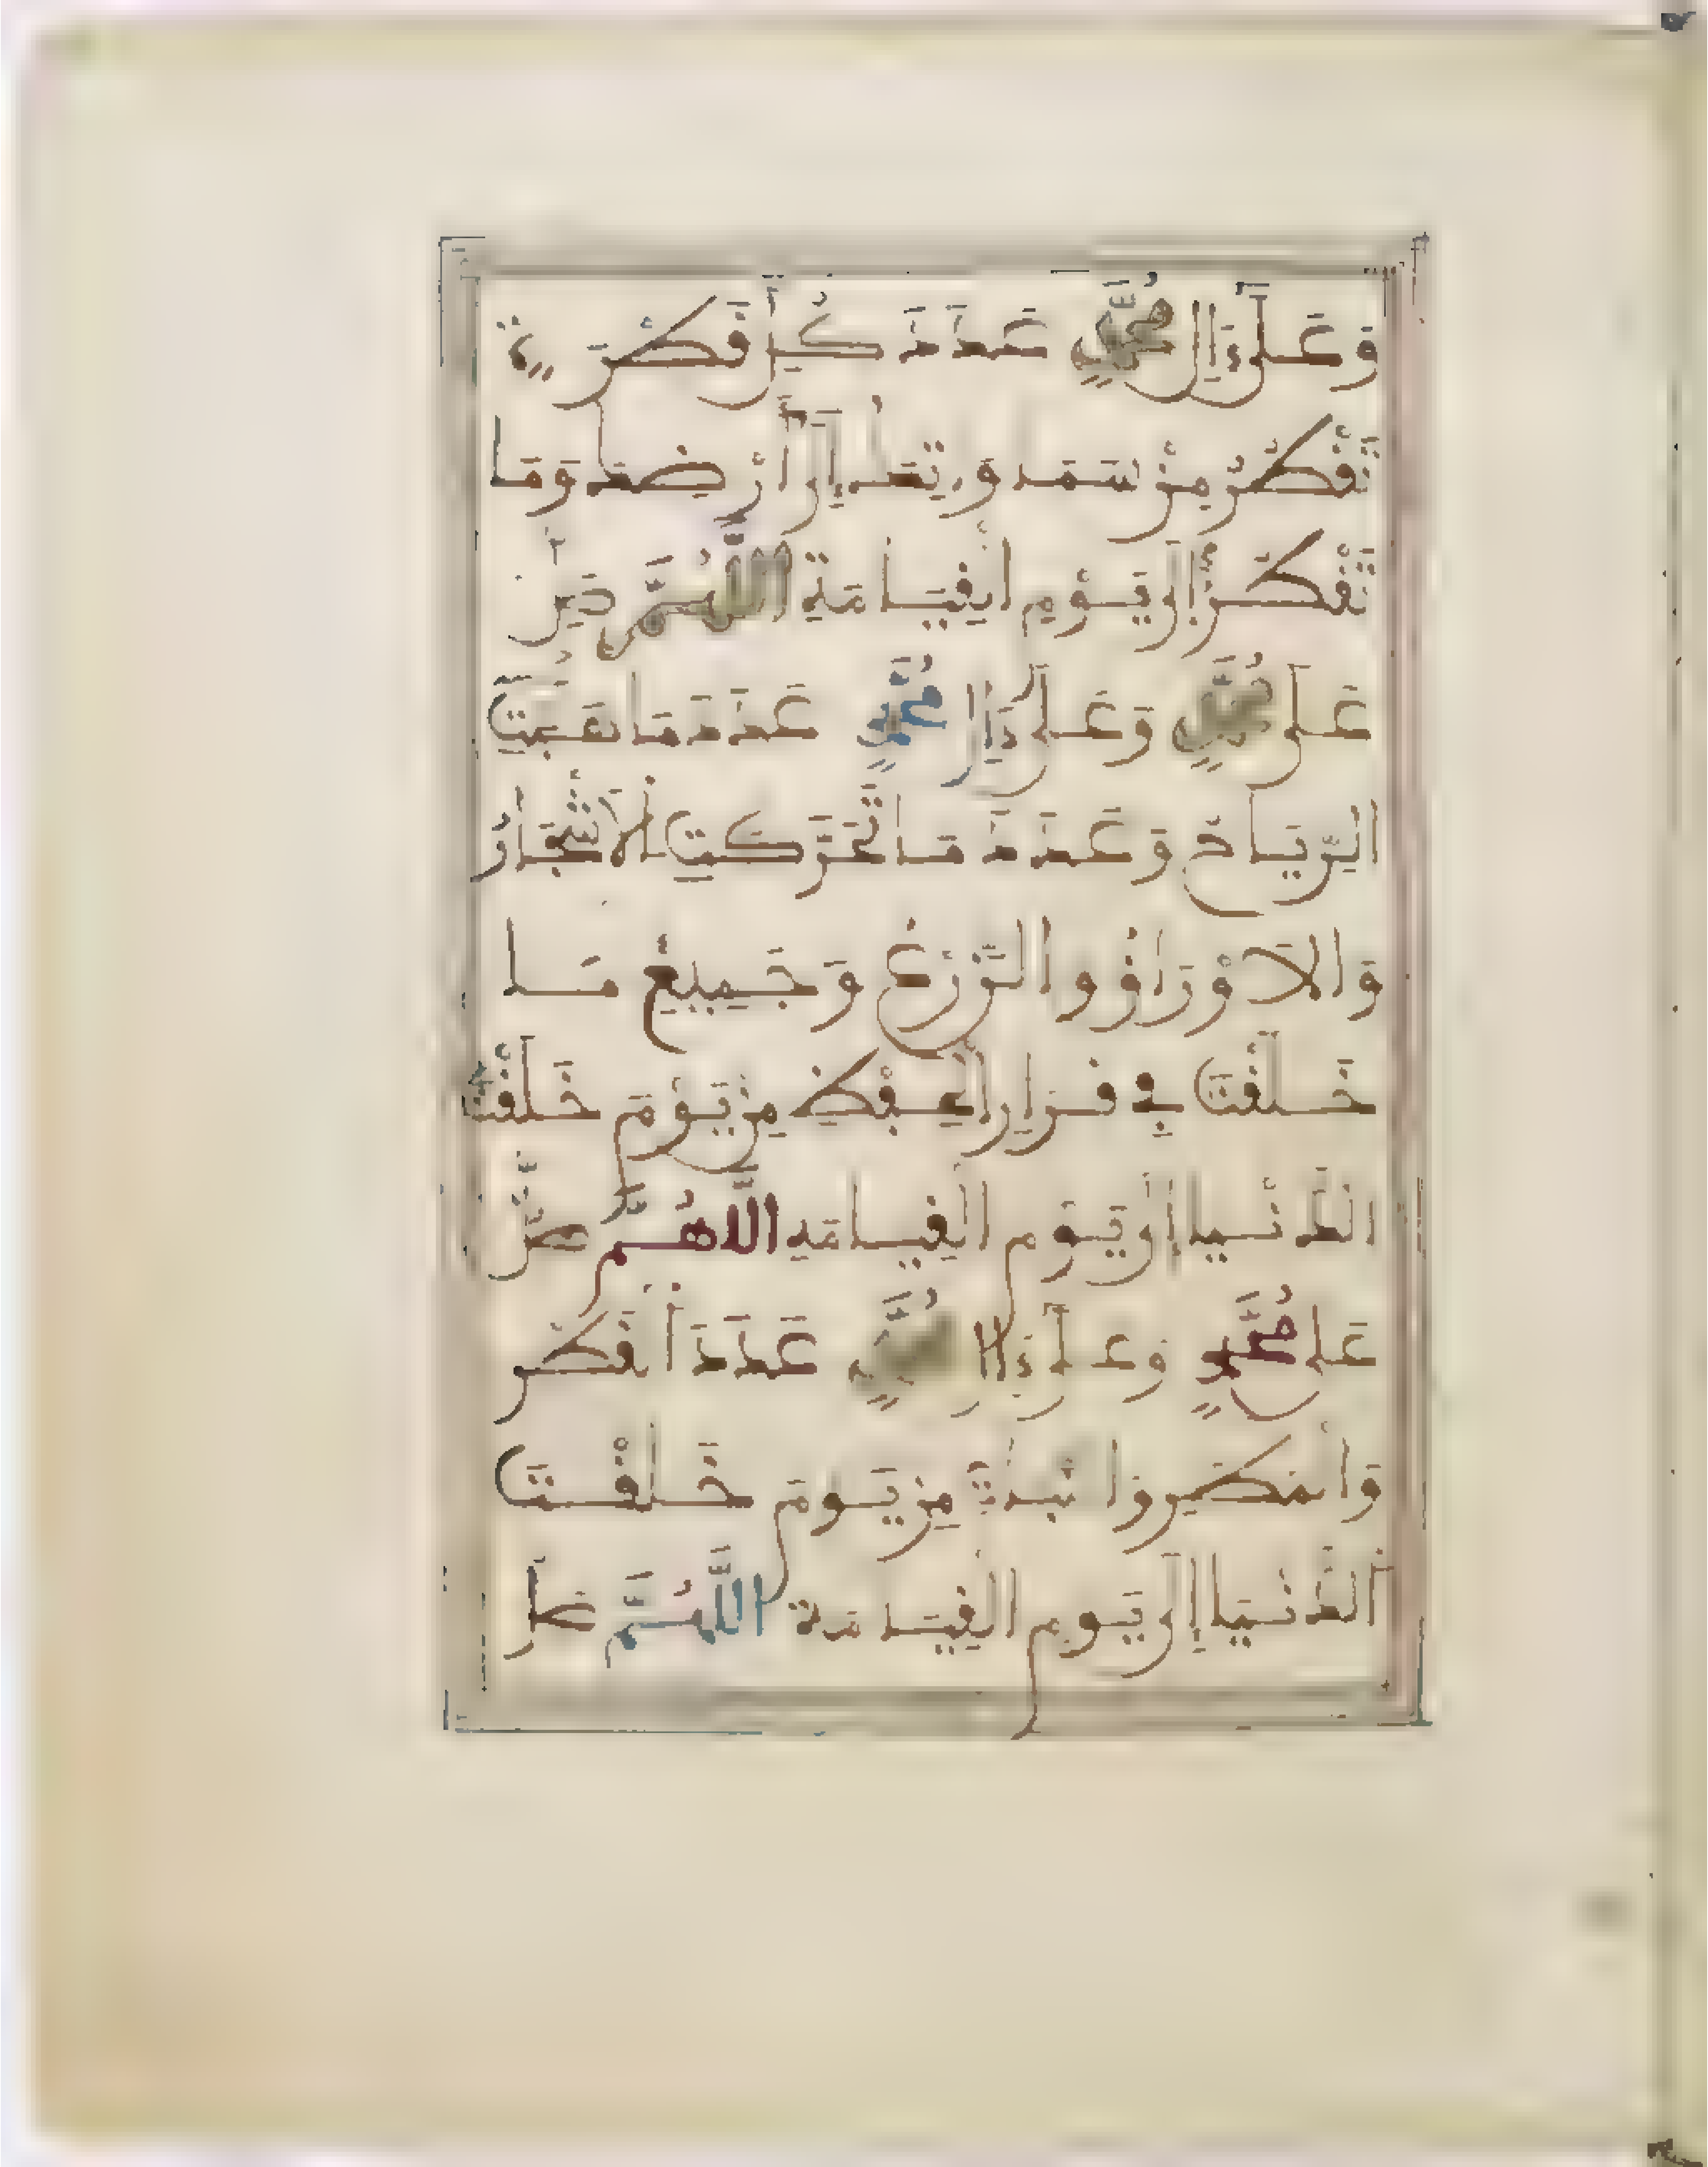 وَعَلَىٰ ءَالِ مُحَمَّدٍ عَدَدَ كُلِّ قَطْرَةٍ
تَقْطُرُ مِنْ سَمَاوَاتِكَ إِلَىٰ أَرْضِكَ وَمَا
تَقْطُرُ إِلَىٰ يَوْمِ الْقِيَامَةِ اللَّهُمَّ صَلِّ
عَلَىٰ مُحَمَّدٍ وَعَلَىٰ ءَالِ مُحَمَّدٍ عَدَدَ مَا هَبَّتِ
الرِّيَاحُ وَعَدَدَ مَا تَحَرَّكَتِ الْأَشْجَارُ
وَالْأَوْرَاقُ وَالزَّرْعُ وَجَمِيعُ مَا
خَلَقْتَ فِي قَرَارِ الْحِفْظِ مِنْ يَوْمَ خَلَقْتَ
الدُّنْيَا إِلَىٰ يَوْمِ الْقِيَامَةِ اللَّهُمَّ صَلِّ
عَلَىٰ مُحَمَّدٍ وَعَلَىٰ ءَالِ مُحَمَّدٍ عَدَدَ الْقَطْرِ
وَالْمَطَرِ وَالنَّبَاتِ مِنْ يَوْمَ خَلَقْتَ
الدُّنْيَا إِلَىٰ يَوْمِ الْقِيَامَةِ اللَّهُمَّ صَلِّ